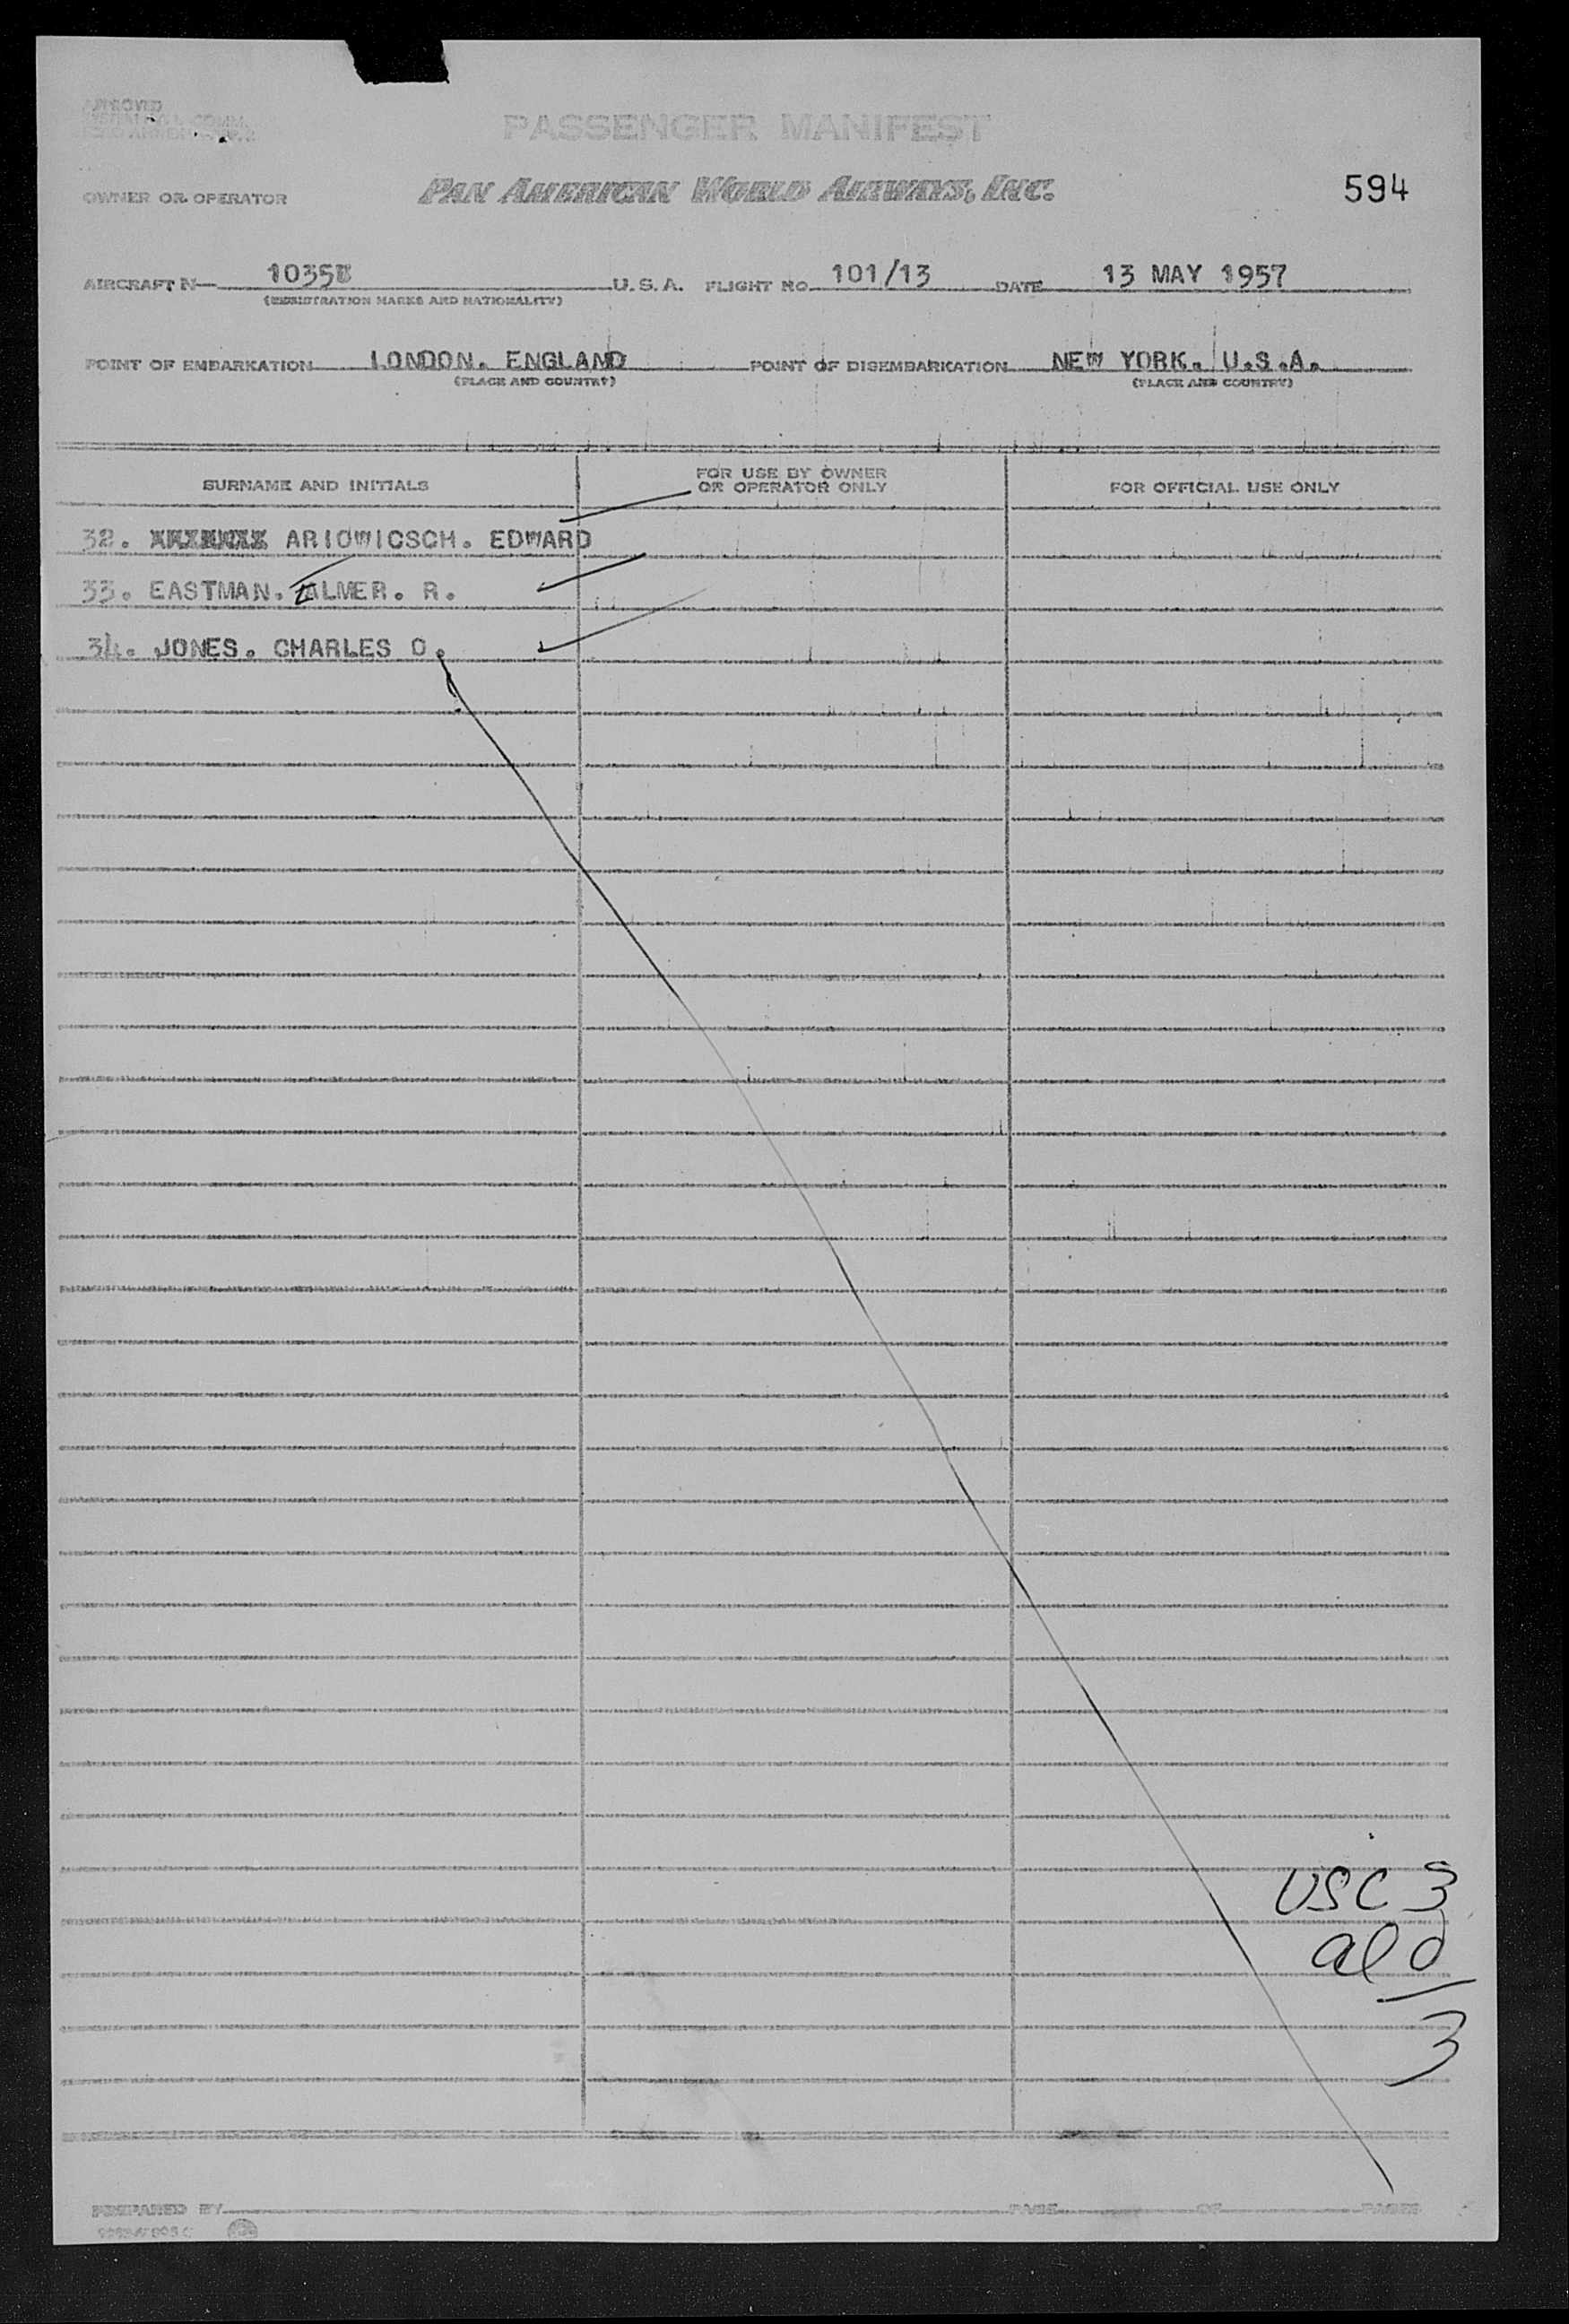 APPROVED
PASSENGER MANIFEST
OWNER OR OPERATOR PAN AMERICAN WORLD AIRWAYS, INC. 594
AIRCRAFT N— 1035 U.S.A. FLIGHT NO. 101/13 DATE 13 MAY 1957
(REGISTRATION MARKS AND NATIONALITY)
POINT OF EMBARKATION LONDON. ENGLAND POINT OF DISEMBARKATION NEW YORK. U.S.A.
(PLACE AND COUNTRY) (PLACE AND COUNTRY)
SURNAME AND INITIALS FOR USE BY OWNER OR OPERATOR ONLY FOR OFFICIAL USE ONLY
32. ARIOWICSCH. EDWARD
33. EASTMAN. ELMER. R.
34. JONES. CHARLES O.
USC 3
al 0
3
PREPARED BY PAGE OF PAGES